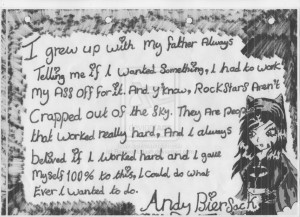 I grew up with My father Always
Telling me if I wanted Something, I had to work
My Ass off for it. And y'know, RockStars Aren't
Crapped out of the Sky. They Are People
that worked really hard, And I always
belived if I worked hard and I gave
Myself 100% to this, I Could do what
Ever I wanted to do.
Andy Biersack